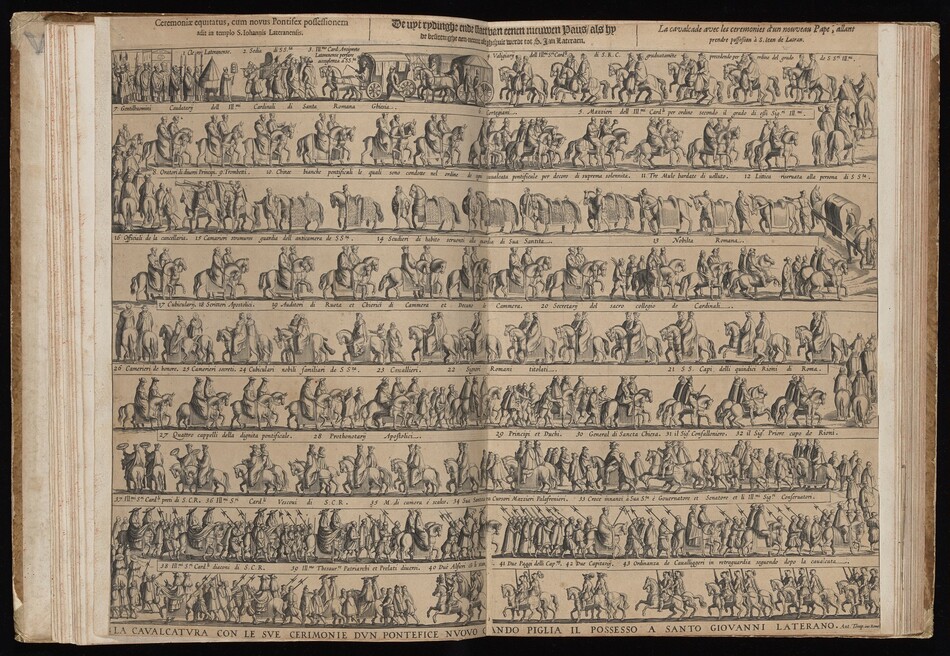 Ceremoniæ equitatus, cum novus Pontifex possessionem
adit in templo S. Iohannis Lateranensis.
De uyt rydinghe ende eenen nieuwen Paus/ als hy
wordt tot S. Jan Lateraen.
La cavalcade avec les ceremonies d'un nouveau Pape, allant
prendre possession à S. Iean de Latran.
1. Clo per Lateranense. 2. Sedia di S.Sta. 3. Illmi Card. Antiquate
Lateranense
Valigiary dell Illmi Sri Card. di S.R.C. gradualmente precedendo per ordine del grado de S.Sri Illmi.
7. Gentilhuomini Caudatarij dell Illmi Cardinali di Santa Romana Ghiesia
5. Mazzieri dell Illmi Cardi per ordine secondo il grado di essi Sigri Illmi.
8. Oratori di duomi Principi. 9. Trombeti. 10. Chinæ bianche pontificali le quali sono condotte nel ordine di cavalcata pontificale per decoro di suprema solemnita. 11 Tre Mule bardate di velluto. 12 Littica riservata alla persona di S Sta.
16 Officiali de la cancellaria. 15 Camerarii extramuros guardia dell anticamera de S Sta. 14 Scudieri di habito di Sua Santita 13 Nobilta Romana
17 Cubicularij. 18 Scrittori Apostolici. 19 Auditori di Ruota et Chierici di Cammera et Decano di Cammera. 20 Secretarij del sacro collegio de Cardinali
26 Camerieri de honore. 25 Camerieri secreti. 24 Cubiculari nobili familiari de S Sta. 23 Cavallieri. 22 Signori Romani titolati 21 S S. Capi delli quindici Rioni di Roma.
27 Quattro cappelli della dignita pontificale. 28 Prothonotarij Apostolici 29 Principi et Duchi. 30 General di Sancta Chiesa. 31 il Sigr Confalloniere. 32 il Sigr Priore capo de Rioni.
37 Illmi Sri Cardi preti di S.C.R. 36 Illmi Sri Cardi Vescovi di S.C.R. 35 M. di camera é scalco. 34 Sua Santita Cursori Mazzieri Palafrenieri. 33 Croce innanzi à Sua Sta é Governatore et Senatore et li Illmi Sigri Conservatori.
38 Illmi Sri Cardi diaconi di S.C.R. 39 Illmo Thesourro Patriarchi et Prelati diversi. 40 Duo Alfieri 41 Duo Paggi delli Capni. 42 Duo Capitanij. 43 Ordinanza de Cavalleggieri in retroguardia seguendo dopo la cavalcata
LA CAVALCATVRA CON LE SVE CERIMONIE DVN PONTEFICE NVOVO QVANDO PIGLIA IL POSSESSO A SANTO GIOVANNI LATERANO. Ant. Temp.